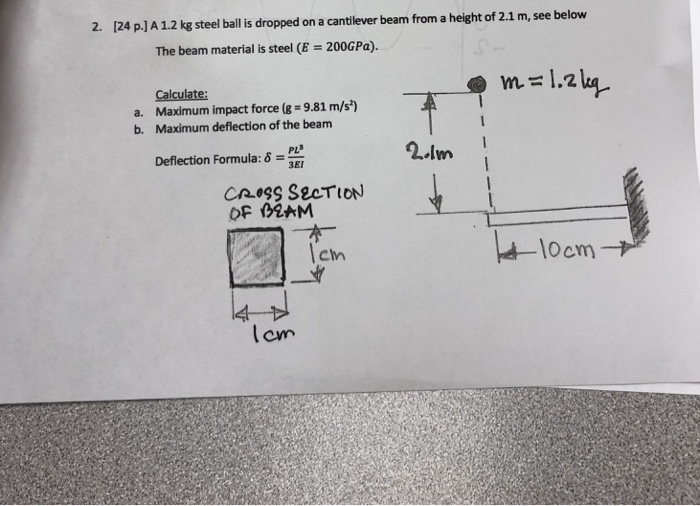 2. [24 p.] A 1.2 kg steel ball is dropped on a cantilever beam from a height of 2.1 m, see below
The beam material is steel (E = 200GPa).
m = 1.2 kg
Calculate:
a. Maximum impact force (g = 9.81 m/s²)
b. Maximum deflection of the beam
2.1m
Deflection Formula: δ = PL³/3EI
CROSS SECTION
OF BEAM
1cm
10cm
1cm